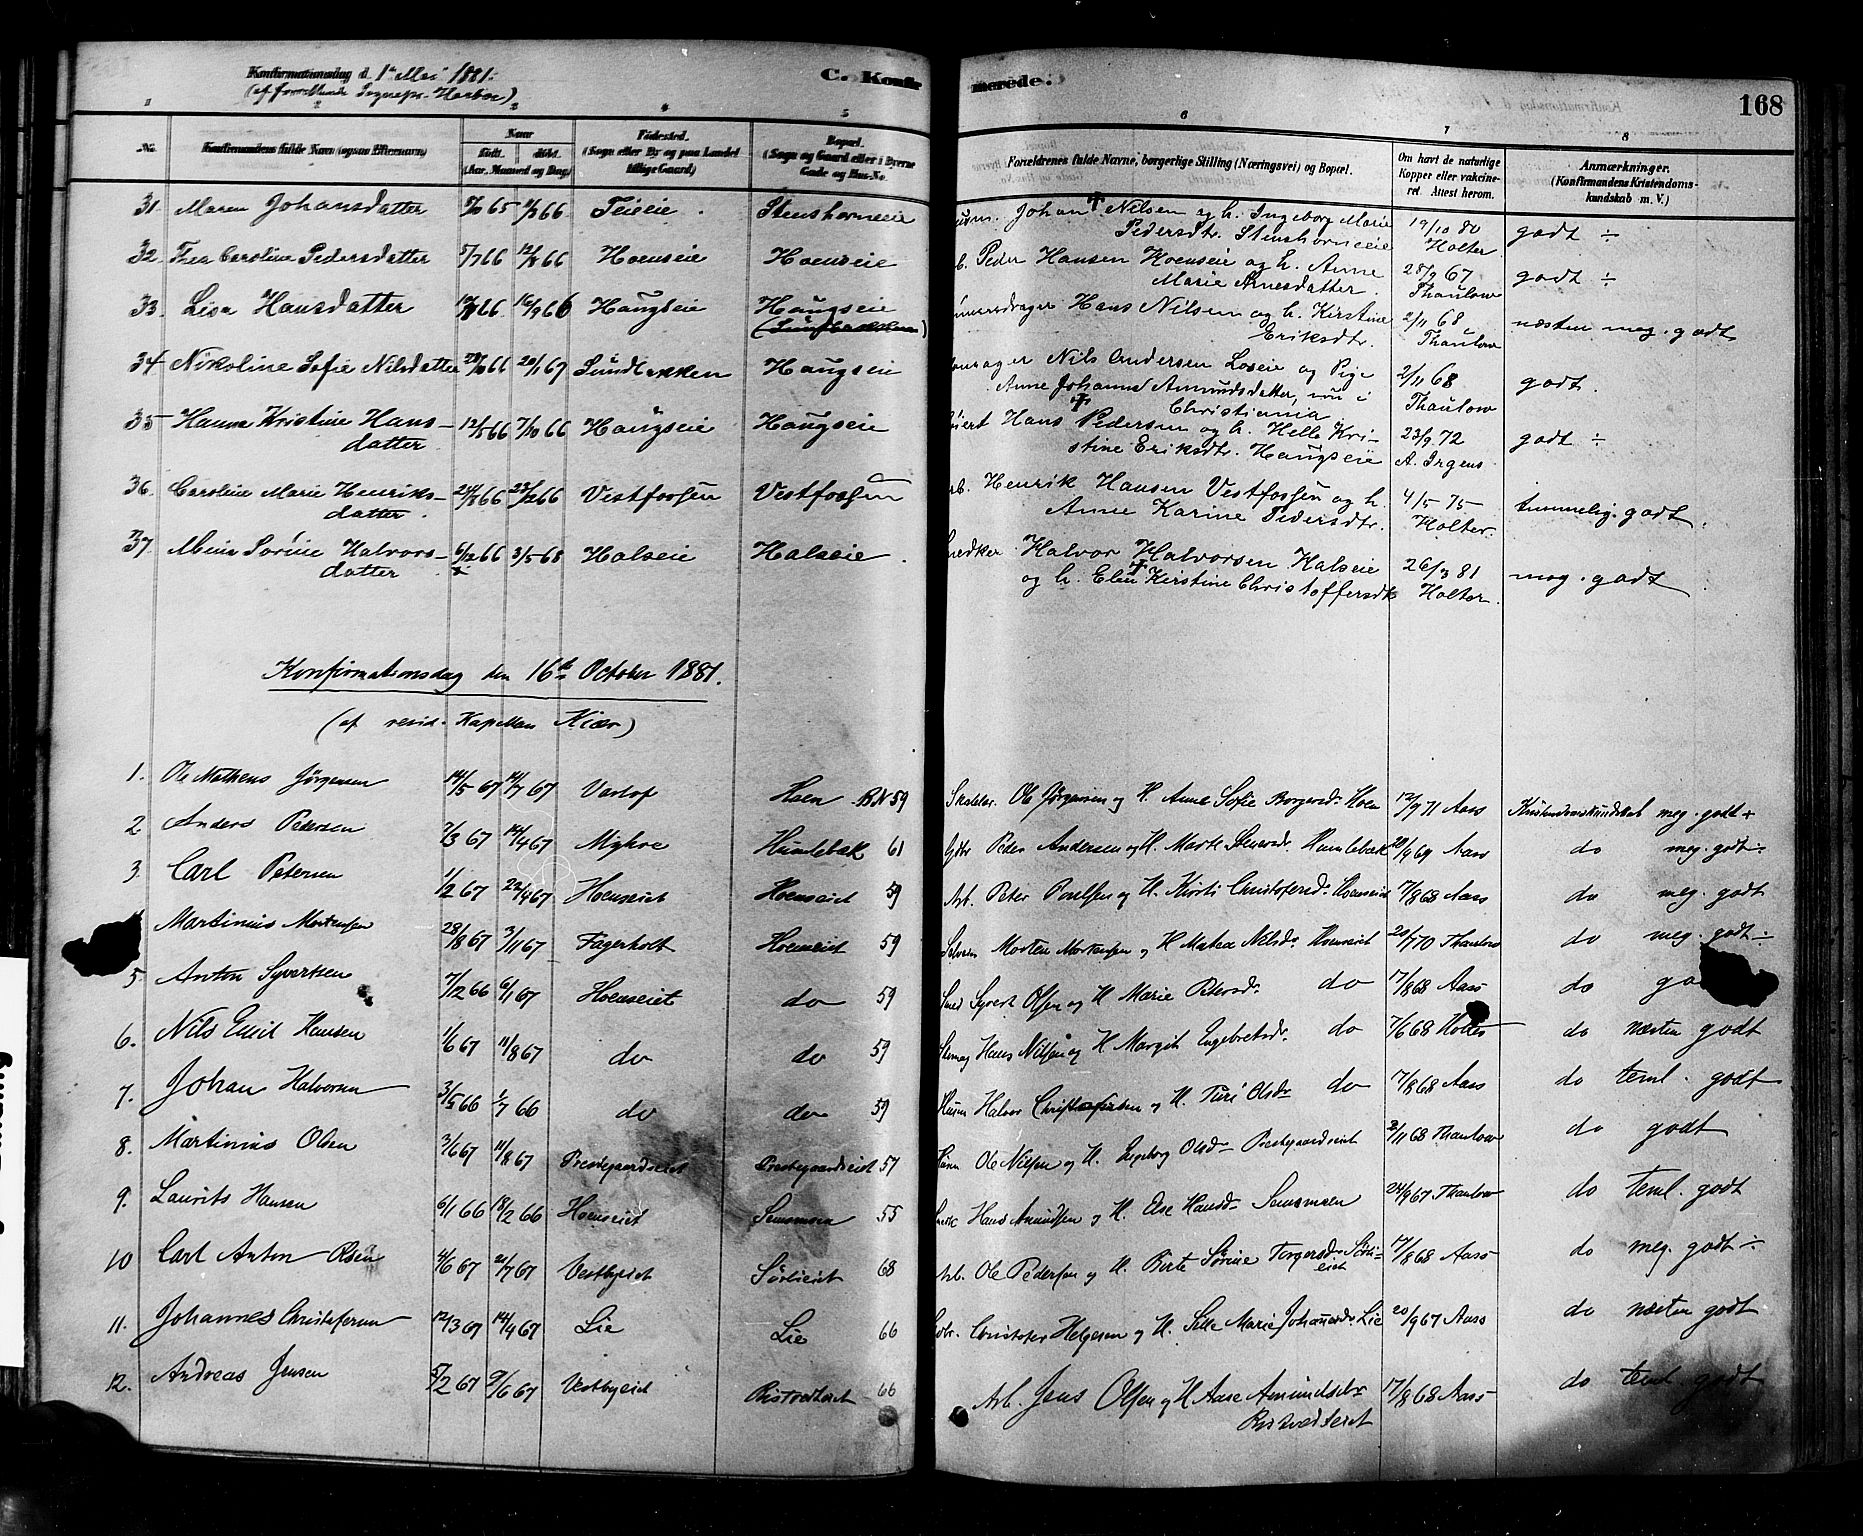 Konfirmationsdag d. 1ste Mai 1881.
C. Konfirmerede.
168
1 2 3 4 5 6 7 8
No. Konfirmandens fulde Navn (ogsaa Efternavn)
Naar
født. døbt.
(Aar, Maaned og Dag)
Fødested.
(Sogn eller By og paa Landet tillige Gaard)
Bopæl.
(Sogn og Gaard eller i Byerne Gade og Hus-No.
Forældrenes fulde Navne, borgerlige Stilling (Næringsvei) og Bopæl.
Om havt de naturlige Kopper eller vakcineret. Attest herom.
Anmærkninger.
(Konfirmandens Kristendomskundskab m. V.)
31. Maren Johansdatter 65 66 Teieeie. Stenshorneeie Johan † Nilsen og h. Ingeborg Marie 19/10 80 godt ÷
Pedersdtr. Stenshorneeie Holter
32. Thea Caroline Pedersdatter 5/7 66 12/8 66 Hoenseie Hoenseie Peder Hansen Hoenseie og h. Anne 28/9 67 godt ÷
Marie Arnesdatter. Thaulow
33. Lisa Hansdatter 66 16/9 66 Haugseie Haugseie Hans Nilsen og h. Kirstine 2/11 68 næsten meg. godt
(Sundbakken) Eriksdtr. Thaulow
34 Nikoline Sofie Nilsdatter 66 20/1 67 Sundbakken Haugseie Nils Andersen Loseie og Pige 2/11 68 godt.
Anne Johanne Amundsdatter, nu i Thaulow
Christiania
35 Hanna Kristine Hans- 12/5 66 7/10 66 Haugseie Haugseie Hans † Pedersen og h. Helle Kri- 23/9 72 godt ÷
datter stine Eriksdtr. Haugseie A. Irgens
36. Caroline Marie Henriks- 66 23/12 66 Vestfossen Vestfossen Henrik Hansen Vestfossen og h. 4/5 75 temmelig. godt.
datter. Anne Karine Pedersdtr. Holter.
37. Mina Sorine Halvors- 6/12 66 3/5 68 Halseie Halseie. Snedker Halvor Halvorsen Halseie 26/3 81 meg. godt
datter og h. Elen † Kirstine Christoffersdtr Holter.
Konfirmationsdag den 16de October 1881.
(af resid. Kapellan Kiær)
1. Ole Mathens Jørgensen 14/5 67 14/7 67 Varlof Hoen BN 59 Ole Jørgensen og H. Anne Sofie Borgersd. Hoen 12/9 71 Aass Kristendomskundskab meg. godt +
2 Anders Pedersen 7/3 67 14/4 67 Myhre Humlebæk 61 Gdbr Peder Andersen og H. Marte Humlebæk 20/9 69 Aass do meg. godt ÷
3. Carl Petersen 1/2 67 22/4 67 Hoenseiet Hoenseiet 59 Arb. Peter Poulsen og H. Kirsti Christofersd. Hoenseiet 17/8 68 Aass do meg. godt
Martinius Mortensen 28/8 67 3/11 67 Fagerholt Hoenseiet 59 Morten Mortensen og H Mathea Nilsd. Hoenseiet 20/7 70 Thaulow do meg. godt ÷
5. Anton Syvertsen 7/12 66 6/1 67 Hoenseiet do 59 Syvert Olsen og H Marie Petersd. do 17/8 68 Aass do
6. Nils Emil Hansen 1/6 67 11/8 67 do do 59 Hans Nilsen og H Margit Engebretsd. do 7/6 68 do næsten godt
7. Johan Halvorsen 3/5 66 66 do do 59 Husm Halvor Christofersen og H. Turi Olsd. do 17/8 68 Aass do teml. godt
8. Martinius Olsen 3/1 67 11/8 67 Prestegaardseiet Prestegaardseiet 57 Ole Nilsen og H. Ingeborg Olsd. Prestegaardseiet 2/11 68 Thaulow do godt
9. Laurits Hansen 6/1 66 18/2 66 Hoenseiet Semsmoen 55 Hans Amundsen og H. Else Hansd. Semsmoen 24/9 67 Thaulow do teml. godt
10 Carl Anton Olsen 4/6 67 21/7 67 Vestbyeiet Sørlieiet 68 Arb. Ole Pedersen og H. Berte Sørine Torgersd. Sørli- 17/8 68 Aass do meg. godt ÷
eiet
11. Johannes Christofersen 12/3 67 14/4 67 Lie Lie 66 Christofer Helgesen og H. Sille Marie Johannesd. Lie 20/9 67 Aass do næsten godt
12. Andreas Jensen 5/2 67 9/6 67 Vestbyeiet 66 Arb. Jens Olsen og H Aase Amundsd. 17/8 68 Aass do teml. godt